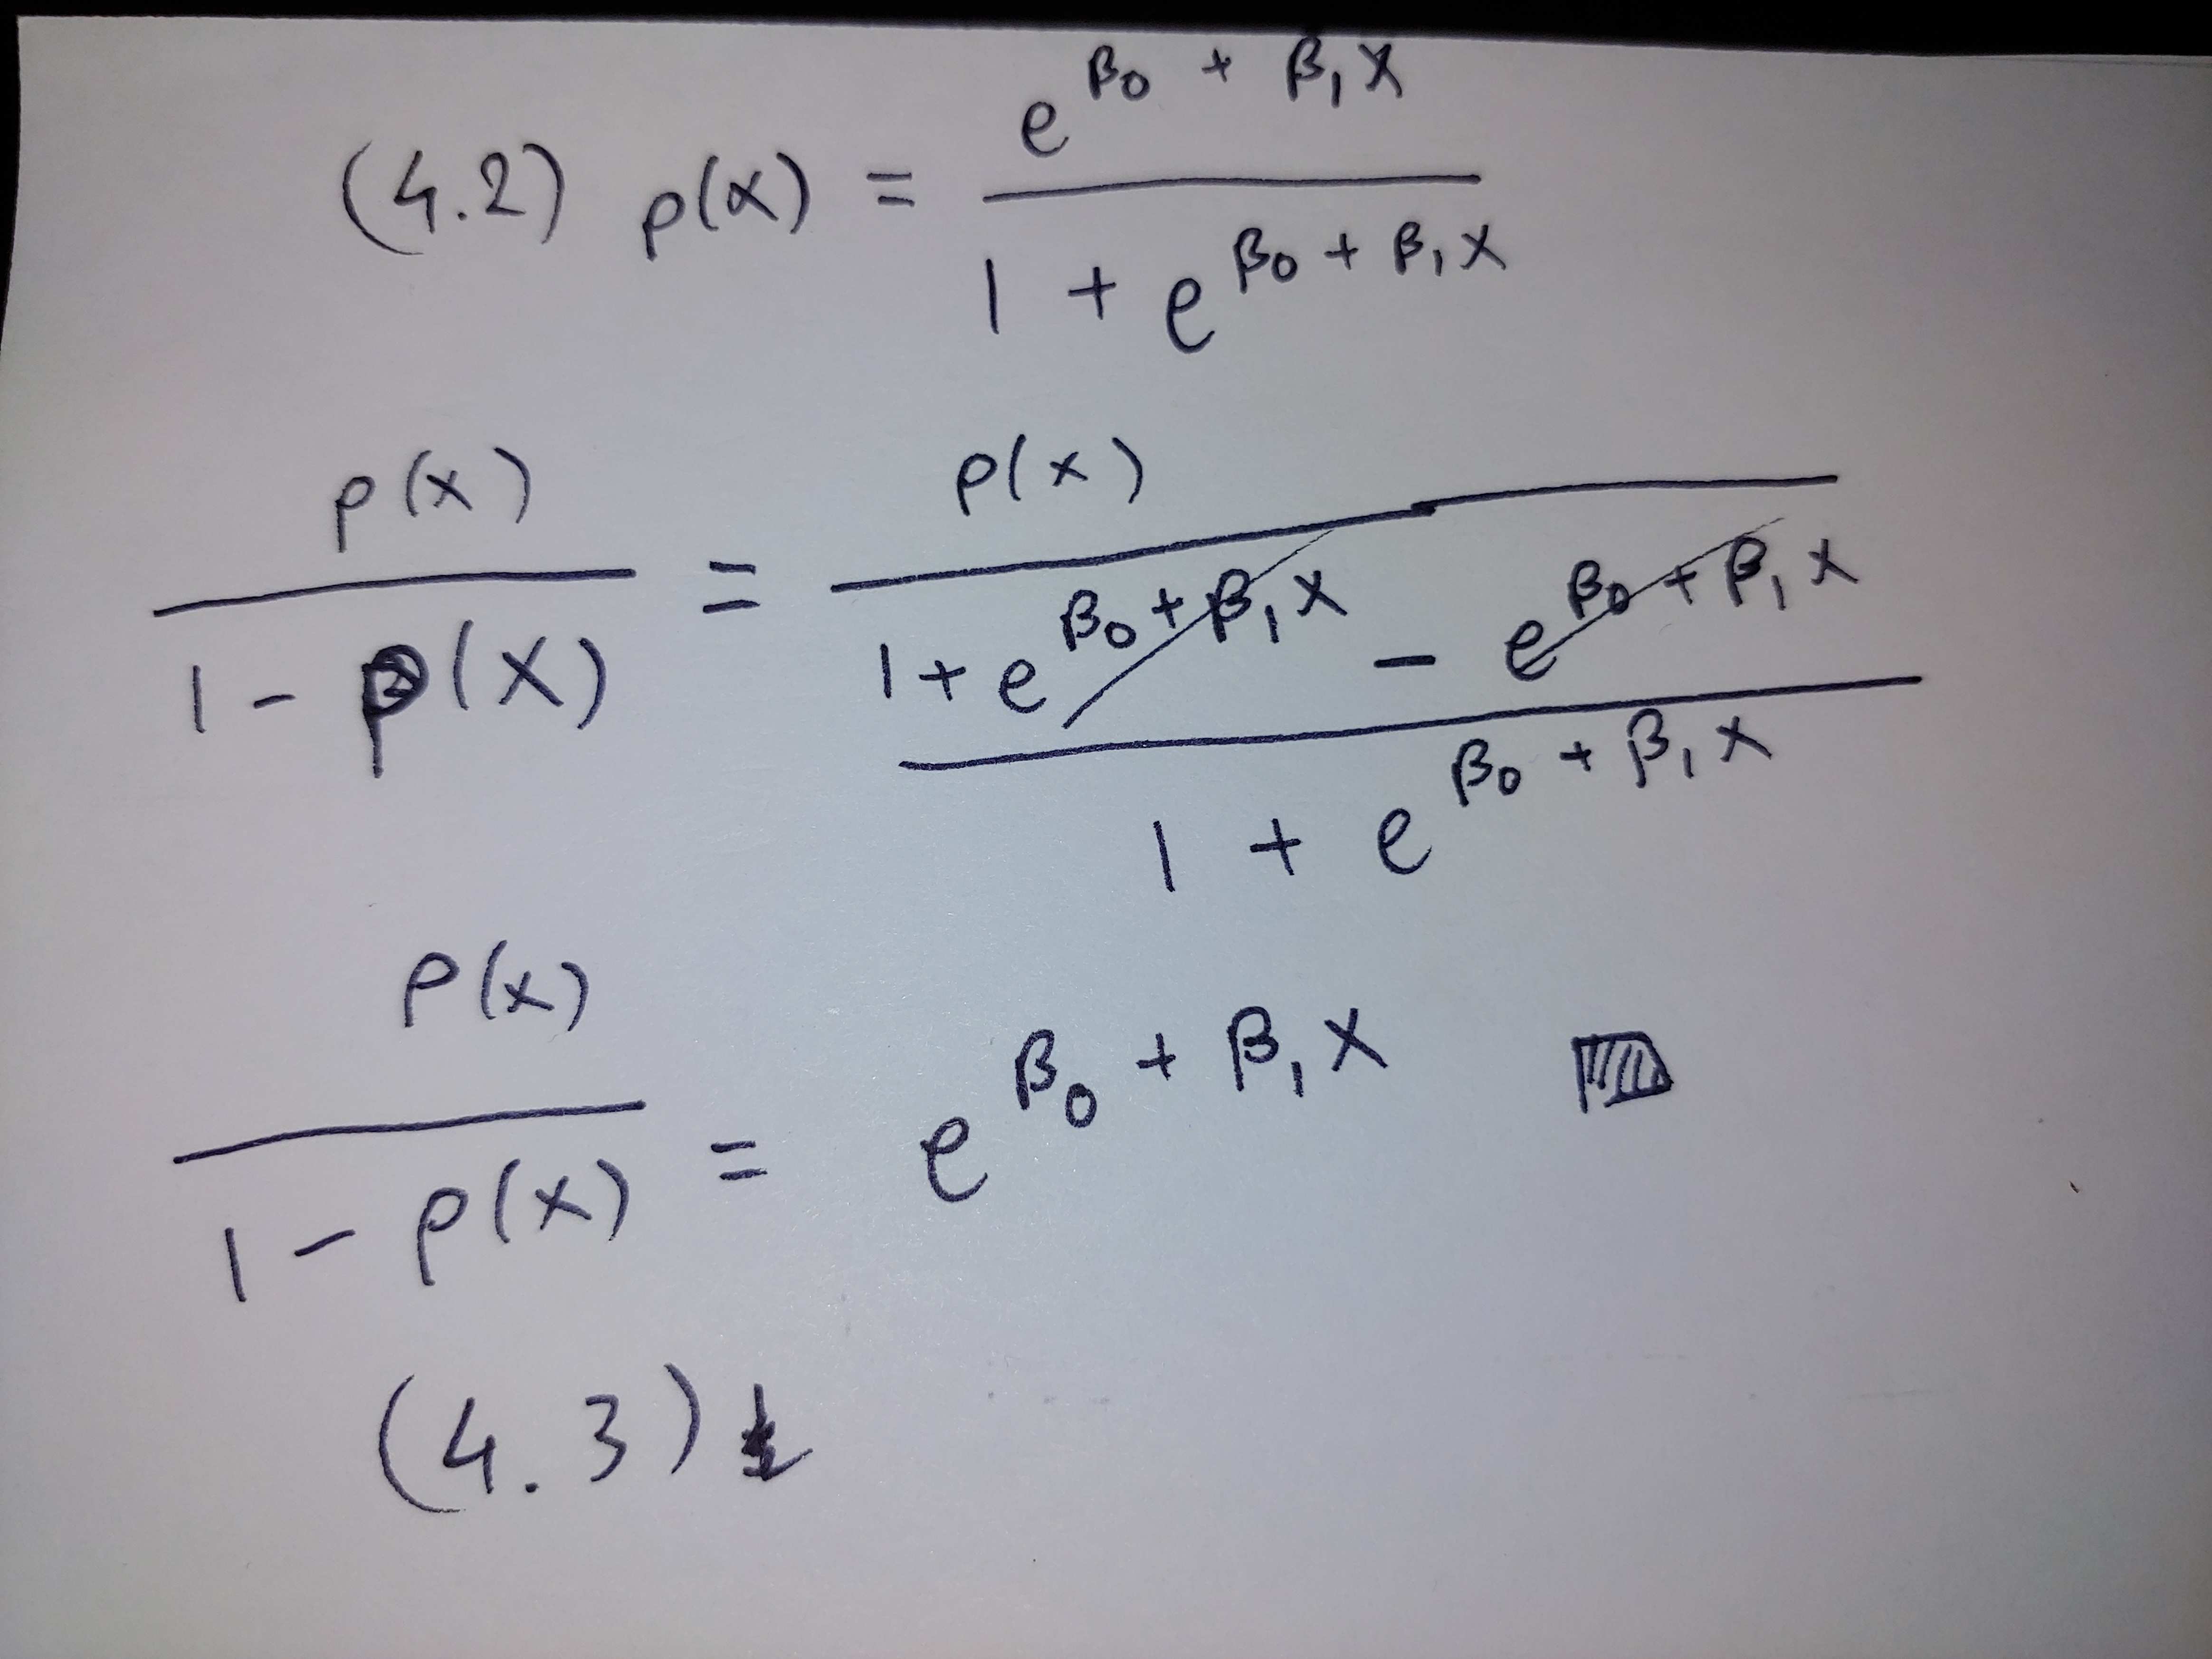 (4.2) p(x) = e^{β₀ + β₁X} / (1 + e^{β₀ + β₁X})
p(x) / (1 - p(X)) = p(x) / ((1 + e^{β₀ + β₁X} - e^{β₀ + β₁X}) / (1 + e^{β₀ + β₁X}))
p(x) / (1 - p(x)) = e^{β₀ + β₁X}
(4.3)